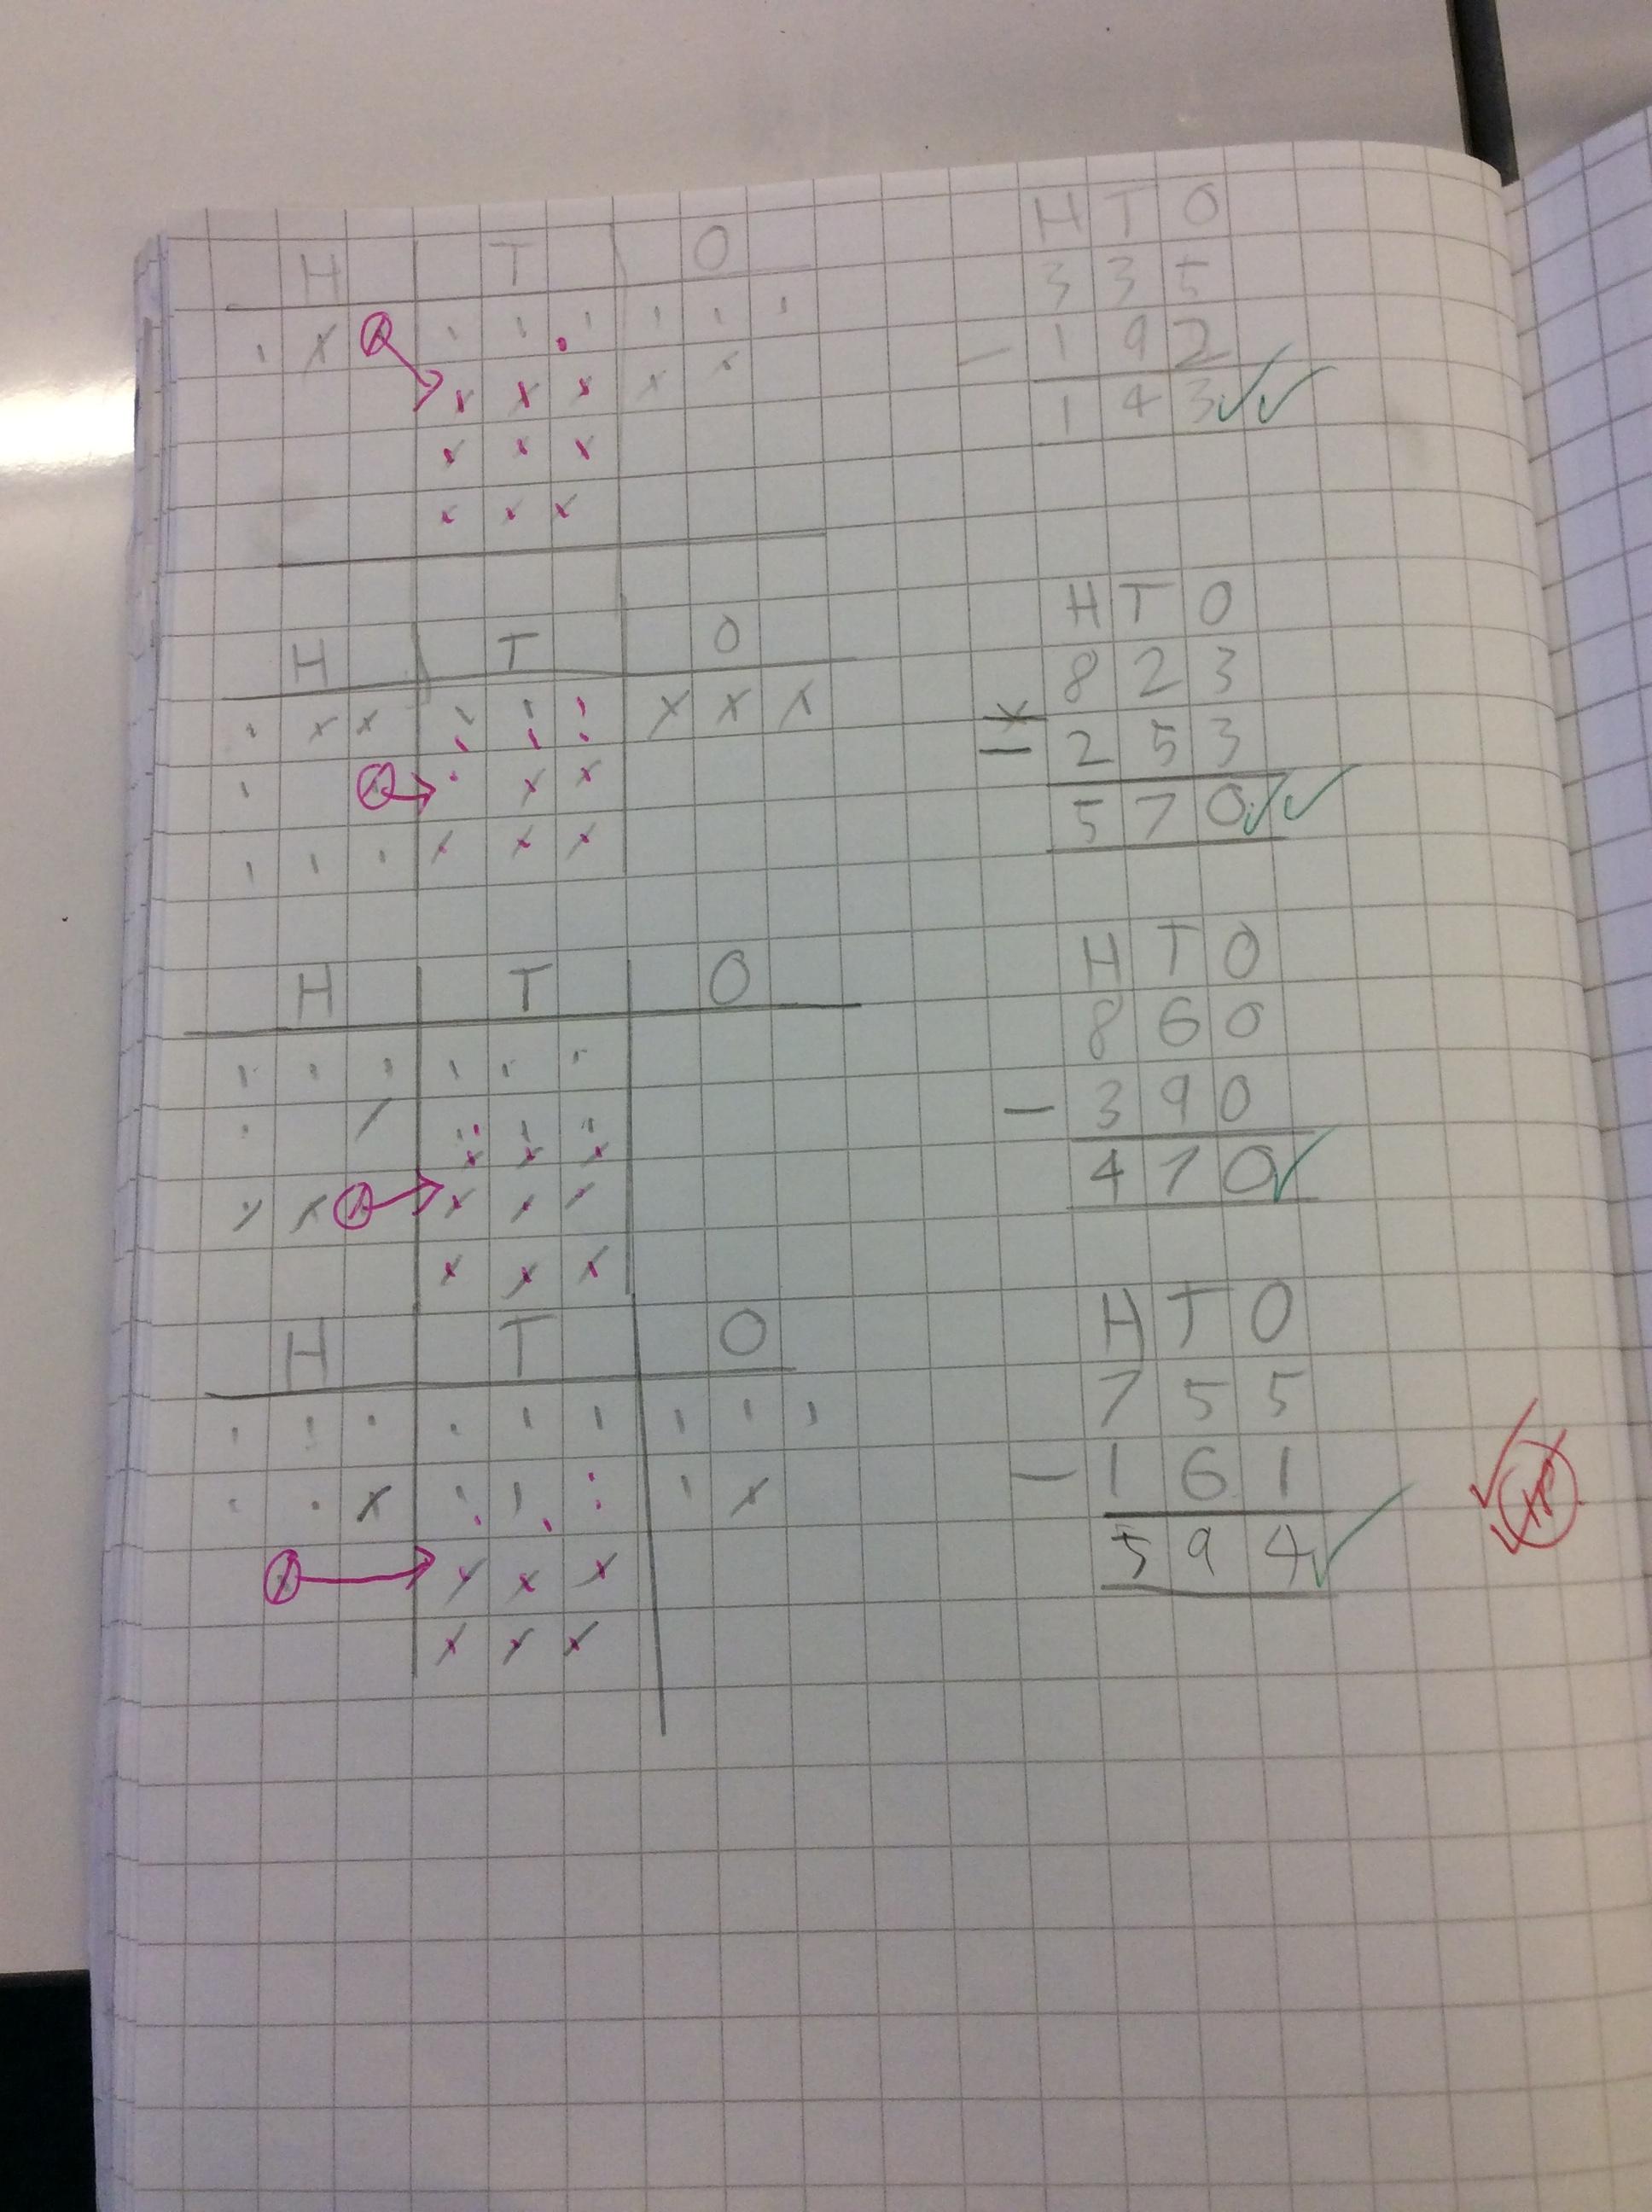 H T O
H T O
3 3 5
- 1 9 2
1 4 3
H T O
H T O
8 2 3
- 2 5 3
5 7 0
H T O
H T O
8 6 0
- 3 9 0
4 7 0
H T O
H T O
7 5 5
- 1 6 1
5 9 4